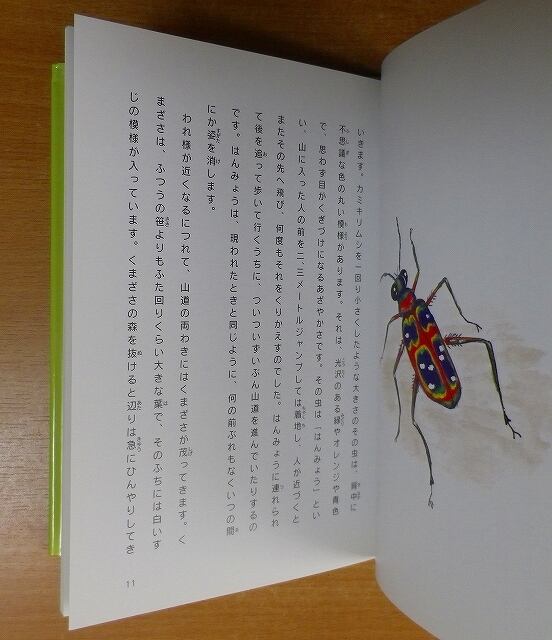 いきます。カミキリムシを一回り小さくしたような大きさのその虫は、背中に
不思議な色の丸い模様があります。それは、光沢のある緑やオレンジや青色
で、思わず目がくぎづけになるあざやかさです。その虫は「はんみょう」とい
い、山に入った人の前を二、三メートルジャンプしては着地し、人が近づくと
またその先へ飛び、何度もそれをくりかえすのでした。はんみょうに連れられ
て後を追って歩いて行くうちに、ついついずいぶん山道を進んでいたりするの
です。はんみょうは、現われたときと同じように、何の前ぶれもなくいつの間
にか姿を消します。
われ様が近くなるにつれて、山道の両わきにはくまざさが茂ってきます。く
まざさは、ふつうの笹よりもふた回りくらい大きな葉で、そのふちには白いす
じの模様が入っています。くまざさの森を抜けると辺りは急にひんやりしてき
11